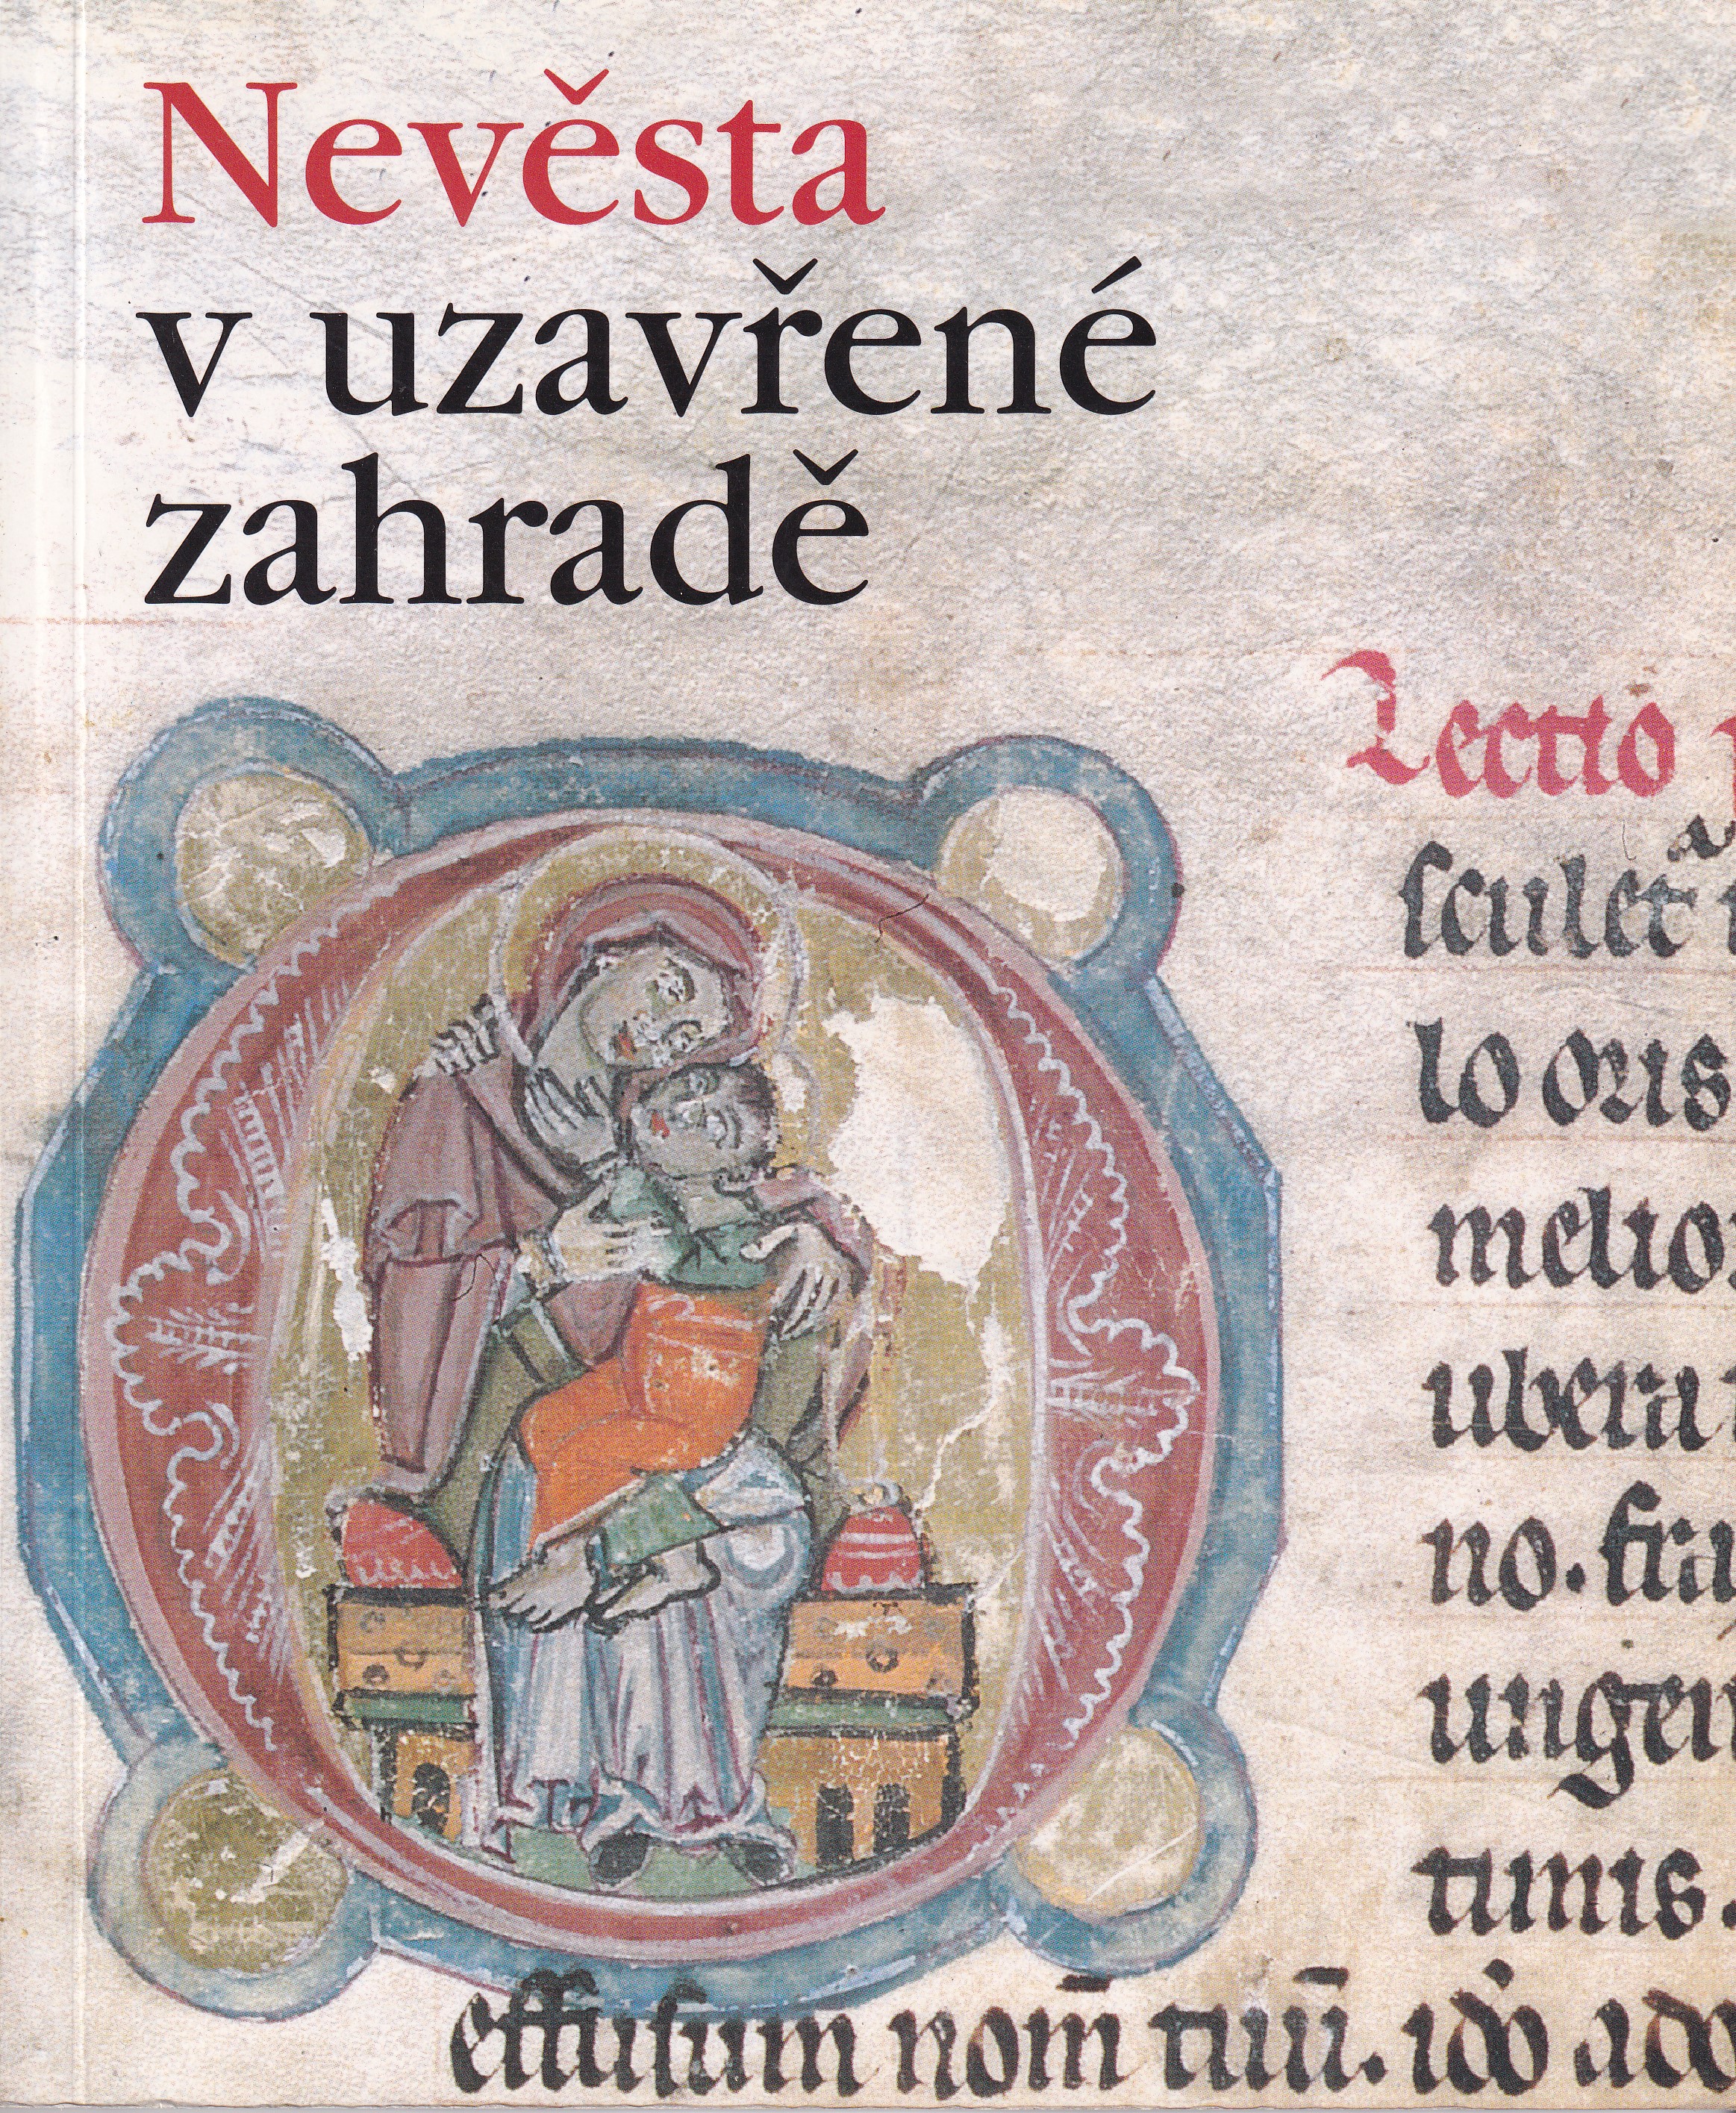 Nevěsta
v uzavřené
zahradě
Lectio
sculetᷓ
lo oris
melio
ubera
no. fra
ungen
tuntis.
effusum nom̄ tuū. ido ado